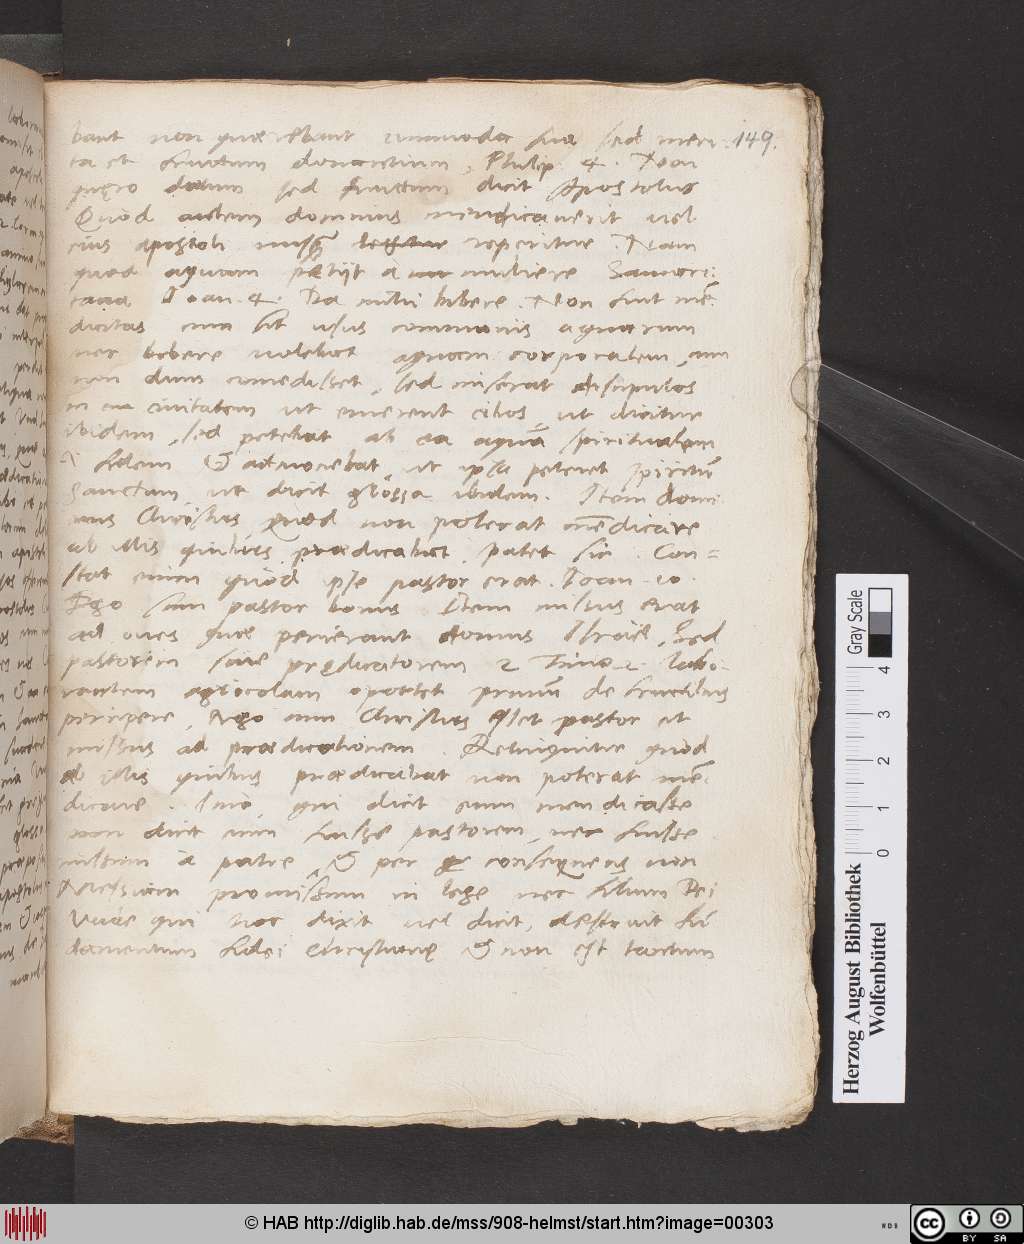 bant non quærebant commoda sua sed meri- 149.
ta et fructum donantium, Philip. 4. Non
quęro datum sed fructum dicit Apostolus
Quod autem dominus mendicauerit uel
eius apostoli nusq̃ legitur reperitur. Nam
quod aquam petijt a muliere Samari:
tana Ioan. 4. Da mihi bibere. Non fuit mẽ-
dicitas cum sit usus communis aquarum
nec bibere uolebat aquam corporalem, cum
non dum comedisset, sed miserat discipulos
in ciuitatem ut emerent cibos, ut dicitur
ibidem, sed petebat ab ea aquã spiritualem
i. fidem & admonebat ut ipsa peteret spiritũ
sanctum, ut dicit glossa ibidem. Item domi-
nus Christus quod non poterat mẽdicare
ab illis quibus prædicabat, patet sic. Con=
stat enim quod ipse pastor erat. Ioan. 10.
Ego sum pastor bonus Item missus erat
ad oues quæ perierant domus Israel, sed
pastorem siue prędicatorem 2 Timo. 2. labo-
rantem agricolam oportet primũ de fructibus
percipere, Ergo cum Christus esset pastor et
missus ad prædicationem. Relinquitur quod
ab illis quibus prædicabat non poterat mẽ-
dicare. Imò, qui dicit eum mendicasse
non dicit eum fuisse pastorem, nec fuisse
missum à patre, & per consequens non
Messiam promissum in lege nec filium Dei
Unde qui hoc dixit uel dicit, destruit fũ-
damentum fidei Christianę & non est tantum
Gray Scale
4
3
2
1
0
Herzog August Bibliothek
Wolfenbüttel
© HAB http://diglib.hab.de/mss/908-helmst/start.htm?image=00303
WDB
cc BY SA